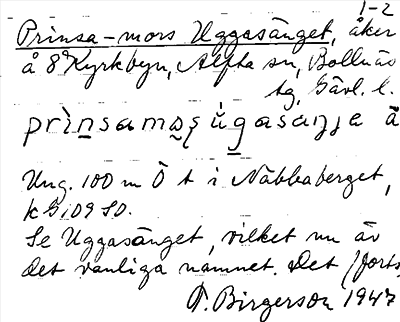 1-2
Prinsa-mors Uggasänget, åker
å 8 Kyrkbyn, Alfta sn, Bollnäs
tg, Gävl. l.
Ung. 100 m Ö t i Näbbaberget,
k G; 09 SO.
Se Uggasänget, vilket nu är
det vanliga namnet. Det (forts.
T. Birgerson 1947